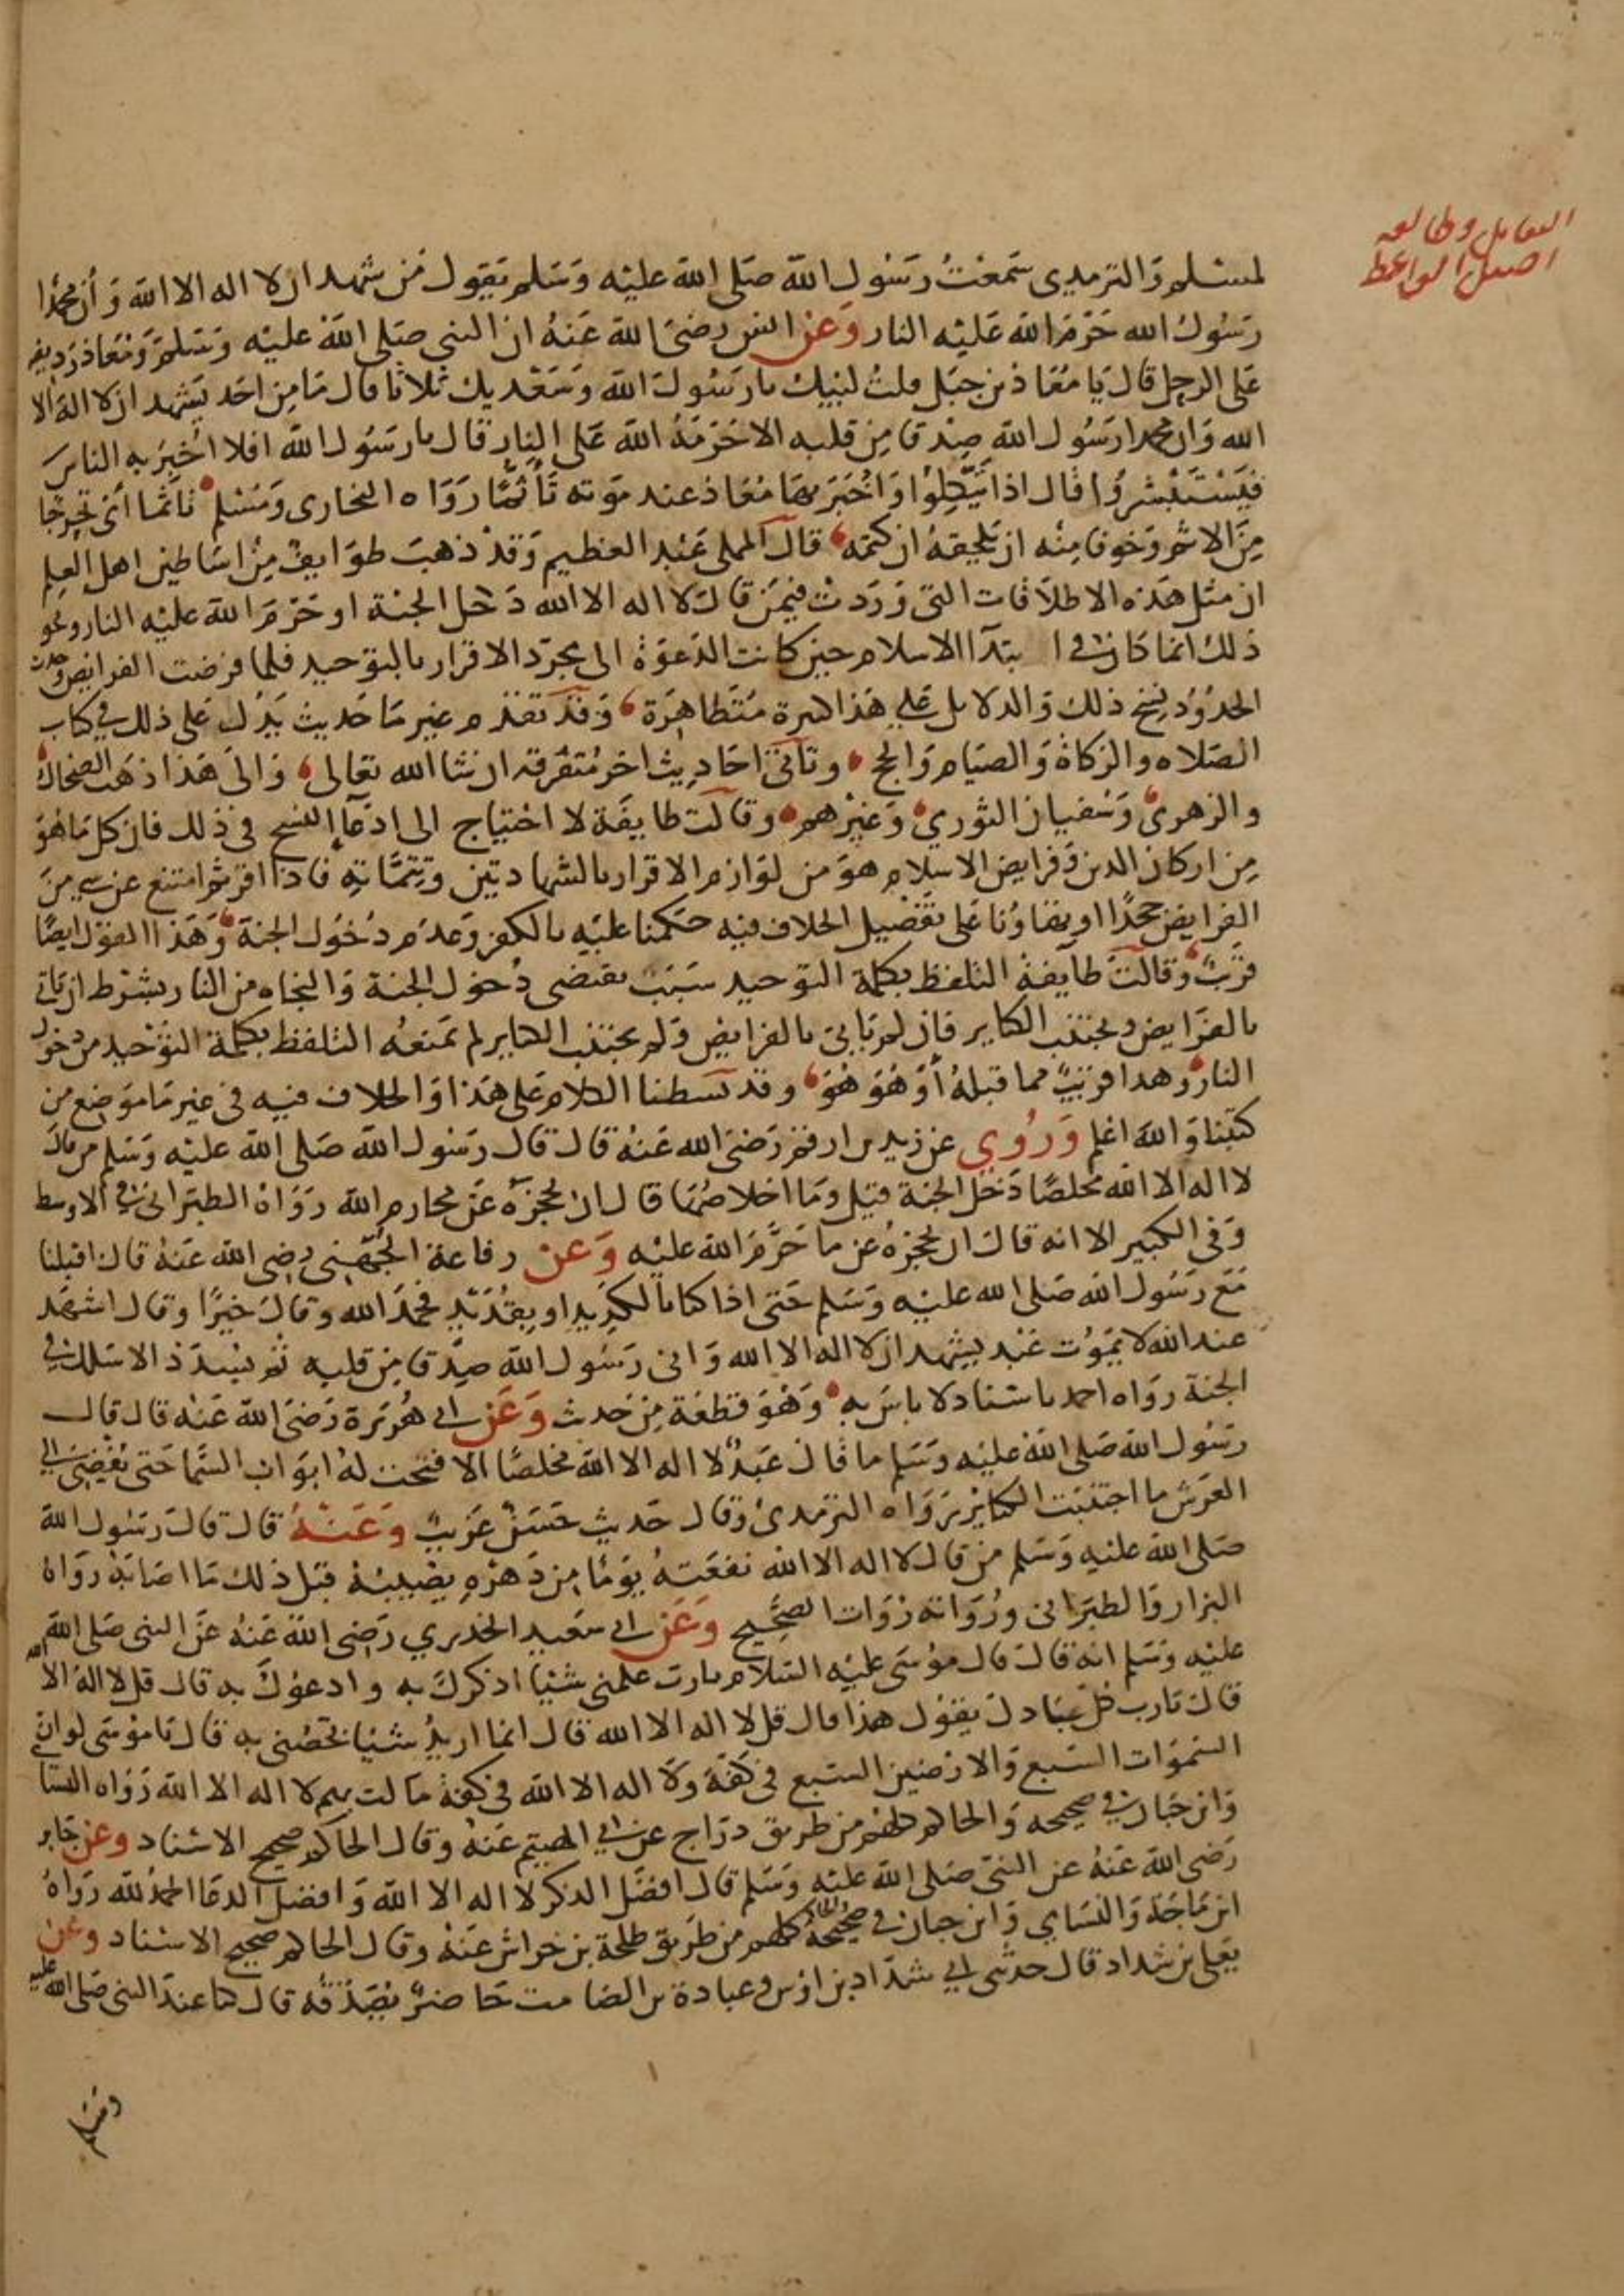 لمسلم والترمدى سمعت رسول الله صلى الله عليه وسلم يقول من شهد ان لا اله الا الله وان محمدا
رسول الله حرم الله عليه النار وعن انس رضى الله عنه ان النبى صلى الله عليه وسلم ومعاذ رديفه
على الرحل قال يا معاذ بن جبل قلت لبيك يا رسول الله وسعديك ثلاثا قال ما من احد يشهد ان لا اله الا
الله وان محمدا رسول الله صدقا من قلبه الا حرمه الله على النار قال يا رسول الله افلا اخبر به الناس
فيستبشروا قال اذا يتكلوا واخبر بها معاذ عند موته تأثما رواه البخارى ومسلم تأثما اى تحرجا
من الاثم وخوفا منه ان يلحقه ان كتمه قال المملى عبد العظيم وقد ذهب طوايف من اساطين اهل العلم
ان مثل هذه الاطلاقات التى وردت فيمن قال لا اله الا الله دخل الجنة او حرم الله عليه النار ونحو
ذلك انما كان فى ابتدآ الاسلام حين كانت الدعوة الى مجرد الاقرار بالتوحيد فلما فرضت الفرايض وحدت
الحدود نسخ ذلك والدلايل على هذا كثيرة متظاهرة وقد تقدم غير ما حديث يدل على ذلك فى كتاب
الصلاه والزكاة والصيام والحج وتأتى احاديث اخر متفرقه ان شا الله تعالى والى هذا ذهب الضحاك
والزهرى وسفيان الثوري وغيرهم وقالت طايفة لا احتياج الى ادعآ النسخ فى ذلك فان كل ما هو
من اركان الدين وفرايض الاسلام هو من لوازم الاقرار بالشهادتين وتتماته فاذا اقر ثم امتنع عن شى من
الفرايض جحدًا او تهاونا على تفصيل الخلاف فيه حكمنا عليه بالكفر وعدم دخول الجنة وهذا القول ايضا
قريب وقالت طآيفة التلفظ بكلمة التوحيد سبب يقتضى دخول الجنة والنجاه من النار بشرط ان ياتى
بالفرايض ويجتنب الكباير فان لم ياتى بالفرايض ولم يجتنب الكباير لم تمنعه التلفظ بكلمة التوحيد من دخول
النار وهدا قريب مما قبله أو هو هو وقد بسطنا الكلام على هذا والخلاف فيه فى غير ما موضع من
كتبنا والله اعلم وروي عن زيد بن ارقم رضى الله عنه قال قال رسول الله صلى الله عليه وسلم من قال
لا اله الا الله مخلصًا دخل الجنة قيل وما اخلاصها قال ان تحجزه عن محارم الله رواه الطبرانى فى الاوسط
وفى الكبير الا انه قال ان تحجزه عن ما حرم الله عليه وعن رفاعة الجهنى رضى الله عنه قال اقبلنا
مع رسول الله صلى الله عليه وسلم حتى اذا كنا بالكديد او بقديد فحمد الله وقال خيرًا وقال اشهد
عند الله لا يموت عبد يشهد ان لا اله الا الله وانى رسول الله صدقا من قلبه ثم يسدد الا سلك فى
الجنة رواه احمد باسناد لا باس به وهو قطعة من حديث وعن ابى هريرة رضى الله عنه قال قال
رسول الله صلى الله عليه وسلم ما قال عبدٌ لا اله الا الله مخلصًا الا فتحت له ابواب السما حتى يفضى الى
العرش ما اجتنبت الكباير رواه الترمدى وقال حديث حسن غريب وعنه قال قال رسول الله
صلى الله عليه وسلم من قال لا اله الا الله نفعته يومًا من دهره يصيبه قبل ذلك ما اصابه رواه
البزار والطبرانى ورواته رواة الصحيح وعن ابى سعيد الخدري رضى الله عنه عن النبى صلى الله
عليه وسلم انه قال قال موسى عليه السلام يا رب علمنى شيئا اذكرك به وادعوك به قال قل لا اله الا الله
قال يا رب كل عبادك يقول هذا قال قل لا اله الا الله قال انما اريد شيئا تخصنى به قال يا موسى لو ان
السموات السبع والارضين السبع فى كفة ولا اله الا الله فى كفة مالت بهم لا اله الا الله رواه النسا
وابن حبان فى صحيحه والحاكم كلهم من طريق دراج عن ابى الهيتم عنه وقال الحاكم صحيح الاسناد وعن جابر
رضى الله عنه عن النبى صلى الله عليه وسلم قال افضل الدكر لا اله الا الله وافضل الدعا الحمد لله رواه
ابن ماجة والنساي وابن حبان فى صحيحه والحاكم كلهم من طريق طلحة بن خراش عنه وقال الحاكم صحيح الاسناد وعن
يعلى بن شداد قال حدثنى ابى شداد بن اوس وعبادة بن الصامت حاضر يصدقه قال كنا عند النبى صلى الله عليه